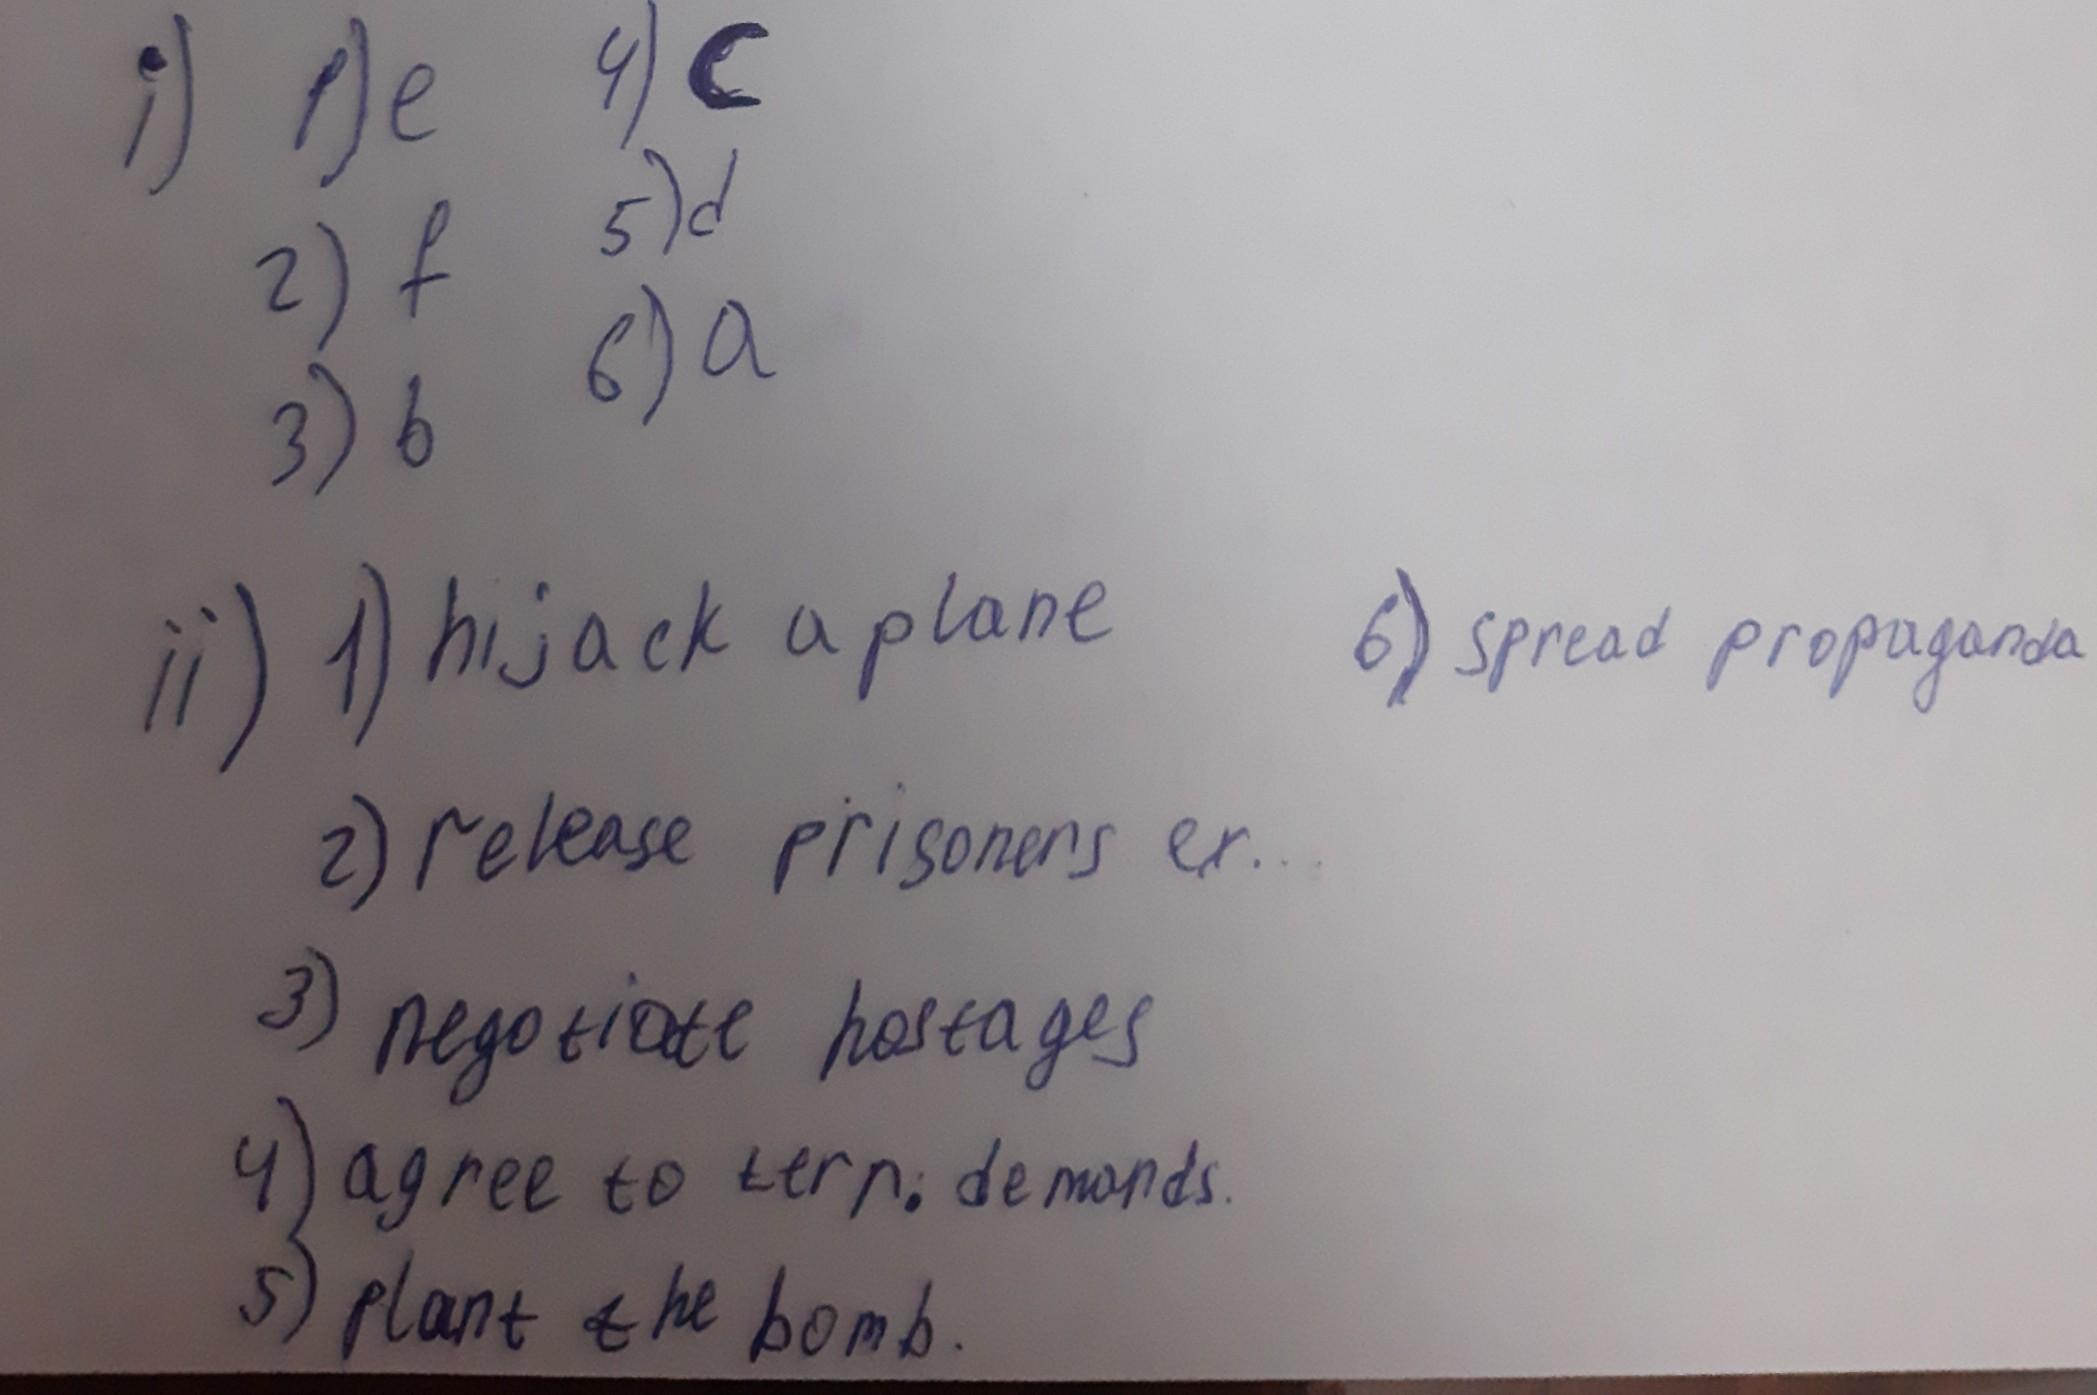 i) 1) e 4) c
2) f 5) d
3) b 6) a
ii) 1) hijack a plane 6) spread propaganda
2) release prisoners ex...
3) negotiate hostages
4) agree to terr. demands.
5) plant the bomb.